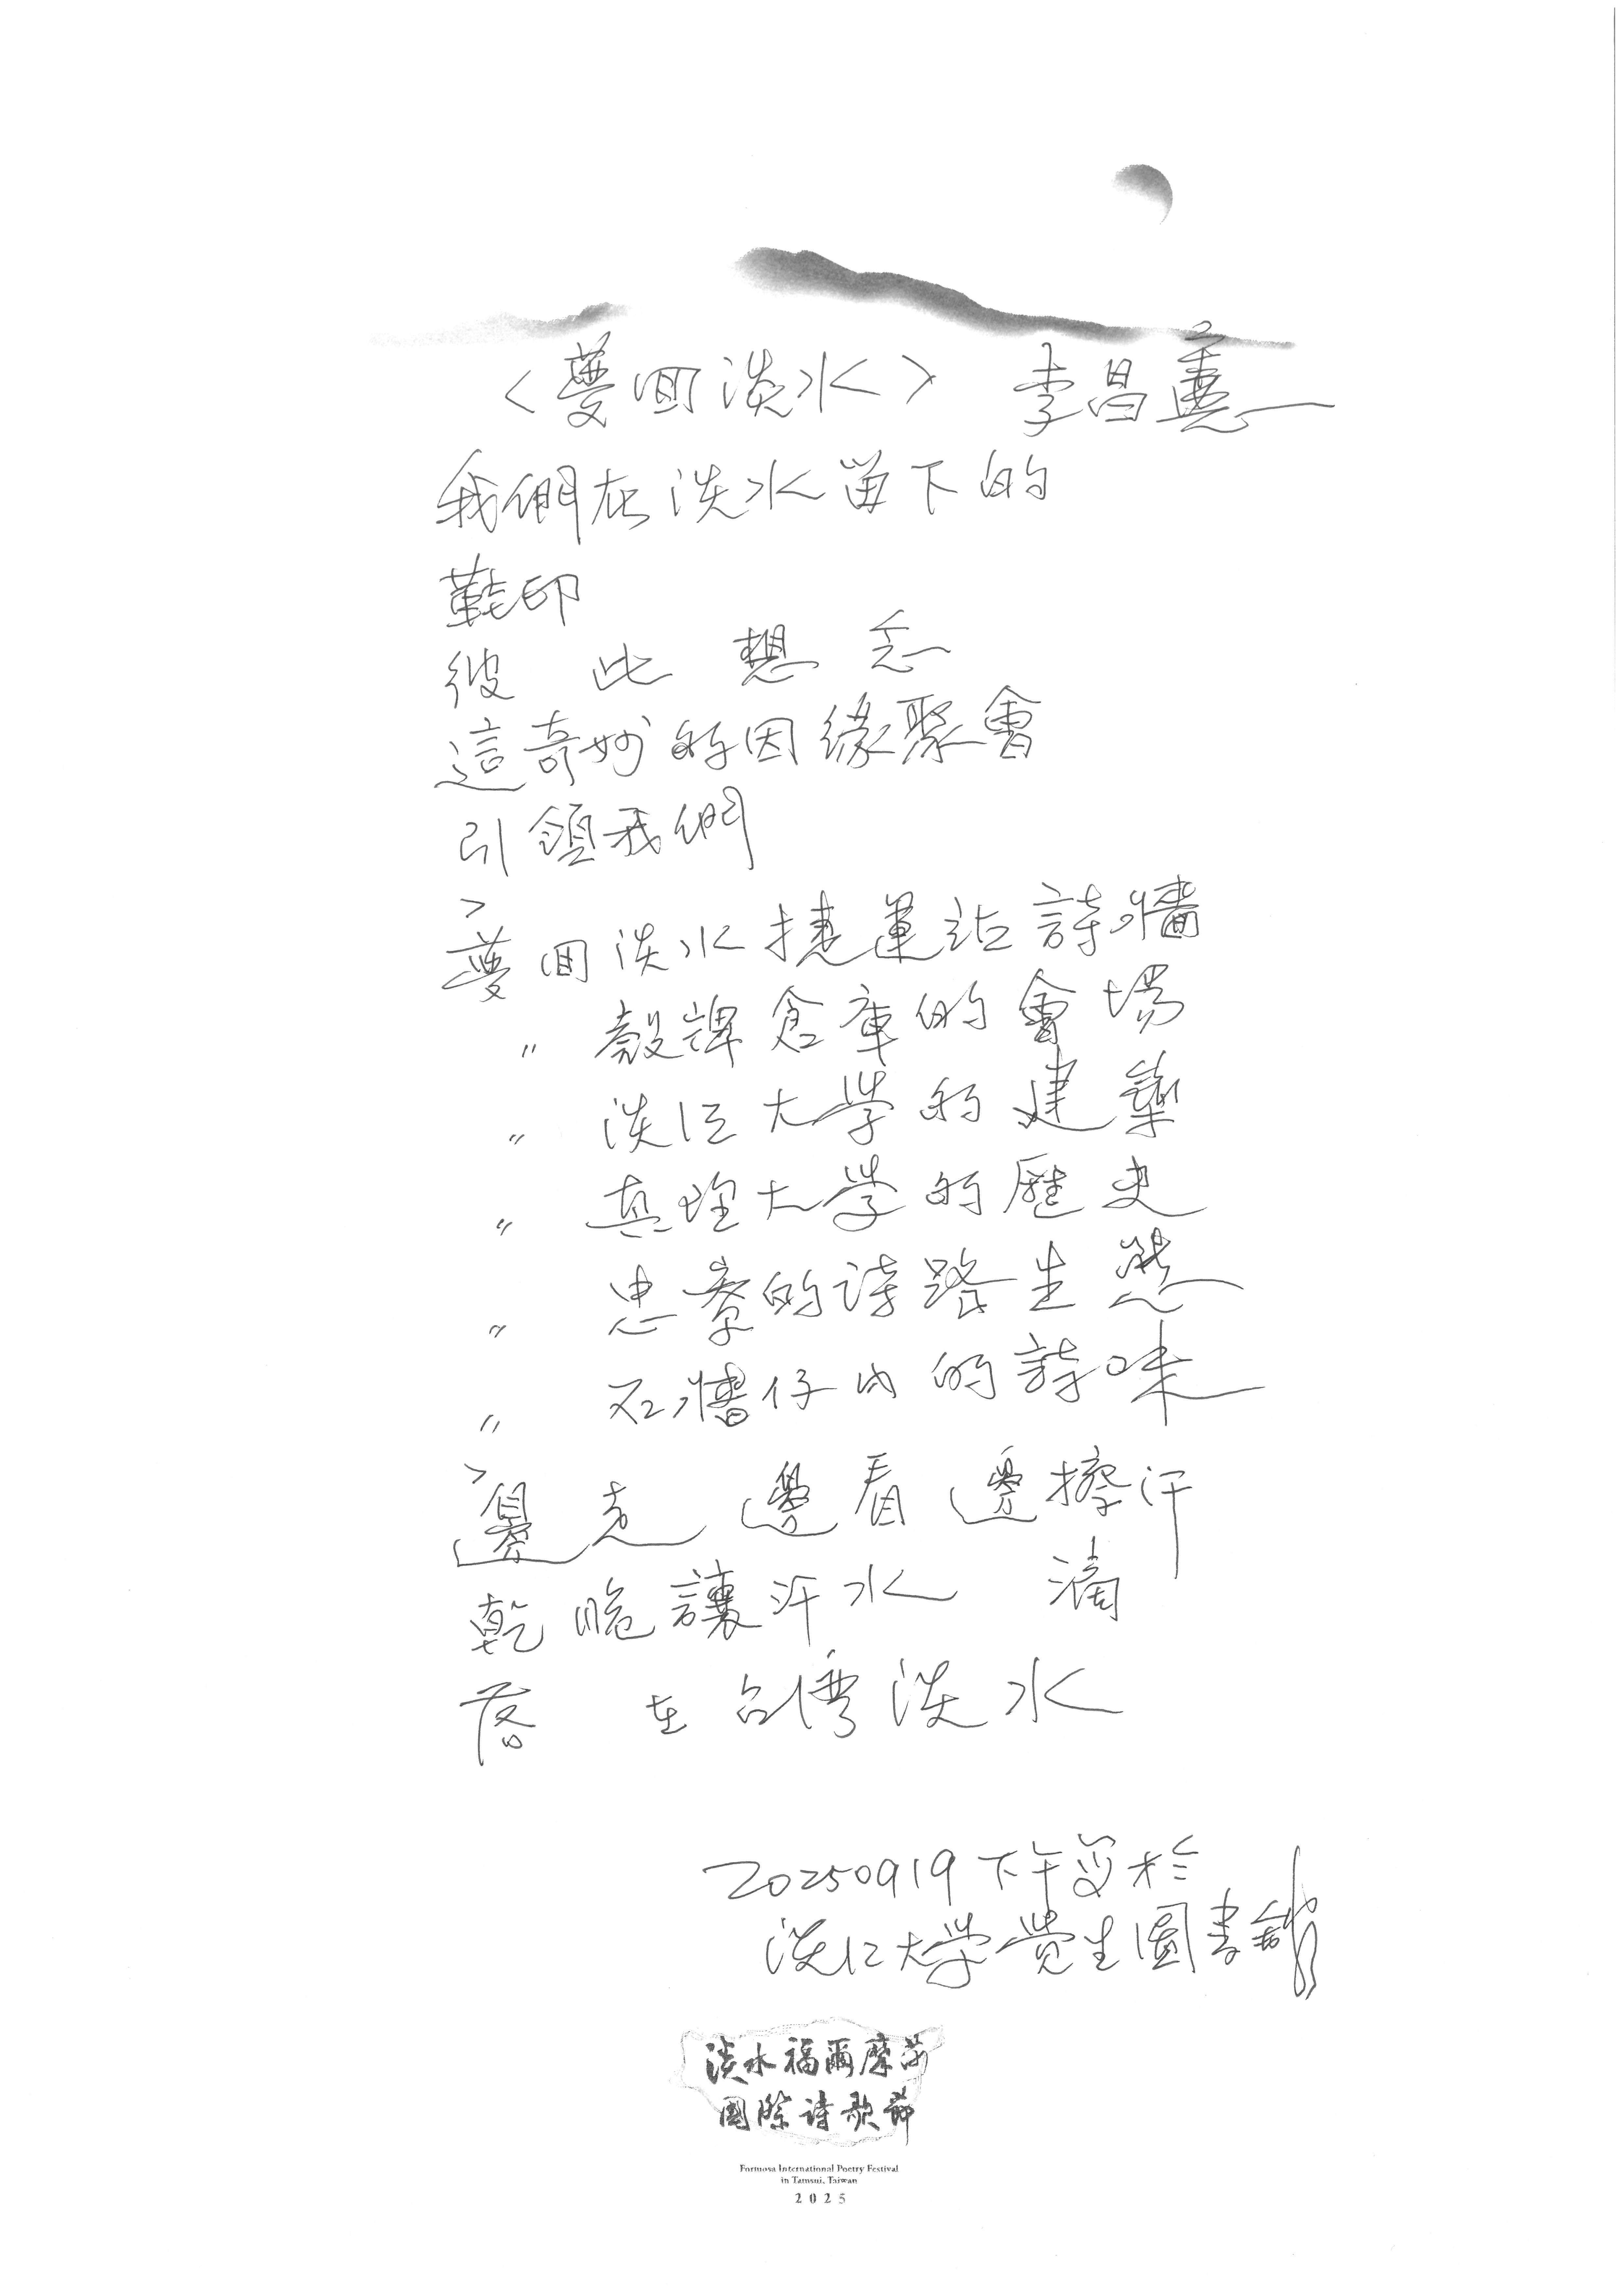 〈夢回淡水〉 李昌憲
我們在淡水留下的
鞋印
彼 此 想 念
這奇妙的因緣聚會
引領我們
>
夢回淡水捷運站詩牆
〃 殼牌倉庫的會場
〃 淡江大學的建築
〃 真理大學的歷史
〃 忠寮的詩路生態
〃 石牆仔內的詩味
>
邊走 邊看 邊擦汗
乾脆讓汗水 滴
落 在台灣淡水
20250919下午寫於
淡江大學覺生圖書館
淡水福爾摩莎
國際詩歌節
Formosa International Poetry Festival
in Tamsui, Taiwan
2025